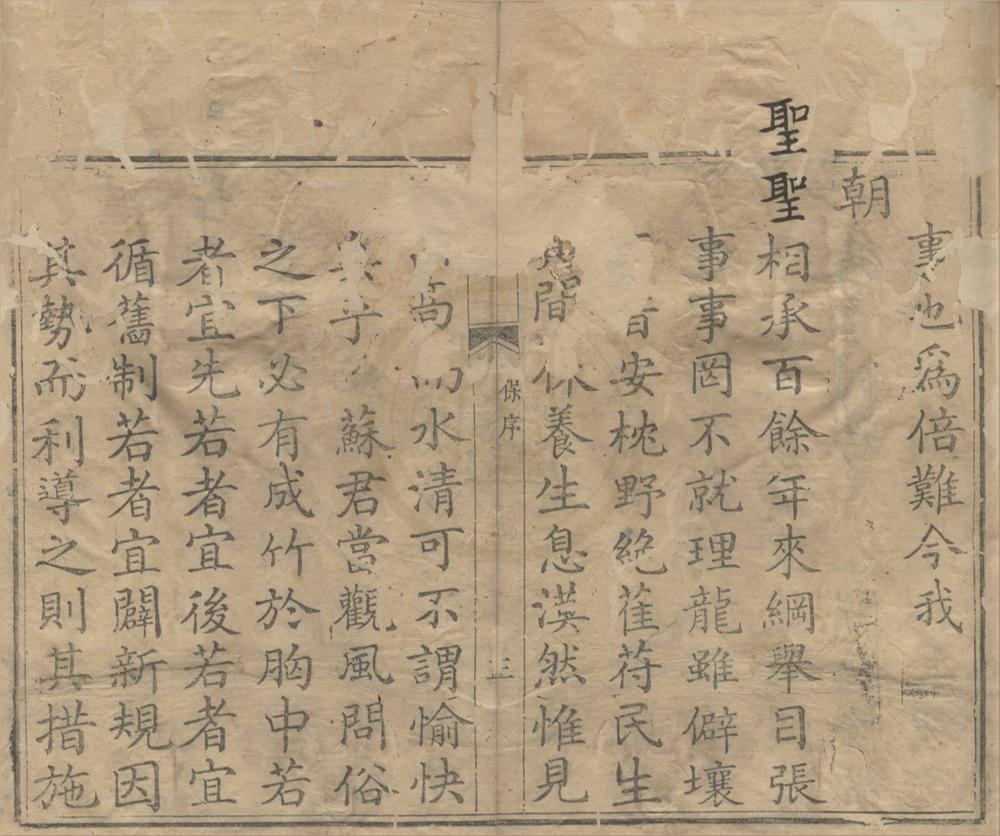 事也爲倍難今我
朝
聖聖相承百餘年來綱舉目張
事事罔不就理龍雖僻壤
安枕野絶萑苻民生
間 養生息漠然惟見
水清可不謂愉快
乎 蘇君當觀風問俗
之下必有成竹於胸中若
者宜先若者宜後若者宜
循舊制若者宜闢新規因
其勢而利導之則其措施
保序
三